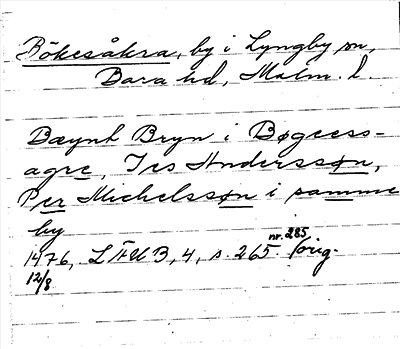 Bökesåkra, by i Lyngby sn,
Bara hd, Malm. l.
Bæynk Bryn i Bøgeess-
agre, Jes Anderssøn,
Per Michelssøn i samme
by
nr. 285
1476, LÄUB, 4, s. 265. orig.
12/8